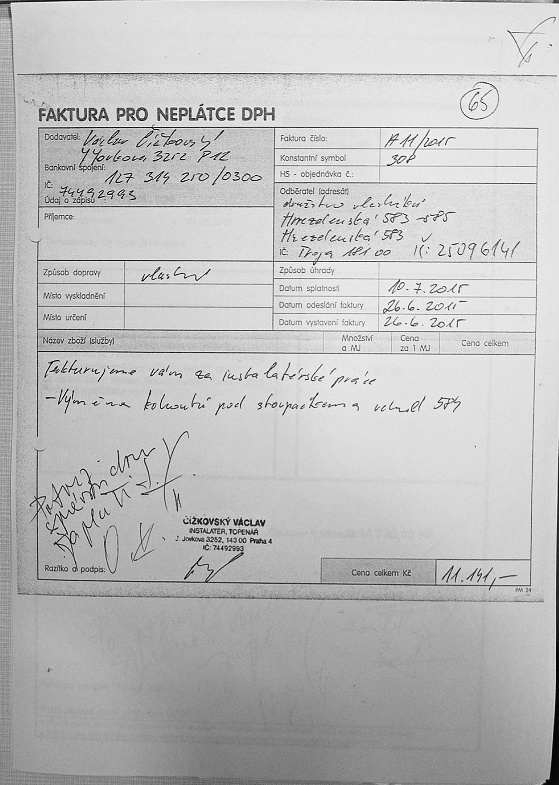 65
FAKTURA PRO NEPLÁTCE DPH
Dodavatel: Václav Čížkovský
Jovkova 3252 P12
Bankovní spojení: 127 314 250/0300
IČ: 74492993
Údaj o zápisu
Příjemce:
Faktura číslo: 11/2015
Konstantní symbol 308
HS - objednávka č.:
Odběratel (adresát)
družstvo vlastníků
Hnězdenská 583-585
Hnězdenská 583
IČ: Troja 181 00 IČ: 25096141
Způsob dopravy vlastní
Místo vyskladnění
Místo určení
Způsob úhrady
Datum splatnosti 10.7.2015
Datum odeslání faktury 26.6.2015
Datum vystavení faktury 26.6.2015
Název zboží (služby) Množství a MJ Cena za 1 MJ Cena celkem
Fakturujeme vám za instalatérské práce
- Výměna kohoutů pod stoupačkama vchod 584
ČÍŽKOVSKÝ VÁCLAV
INSTALATÉR, TOPENÁŘ
J. Jovkova 3252, 143 00 Praha 4
IČ: 74492993
Razítko a podpis:
Cena celkem Kč 11.141,-
PM 34